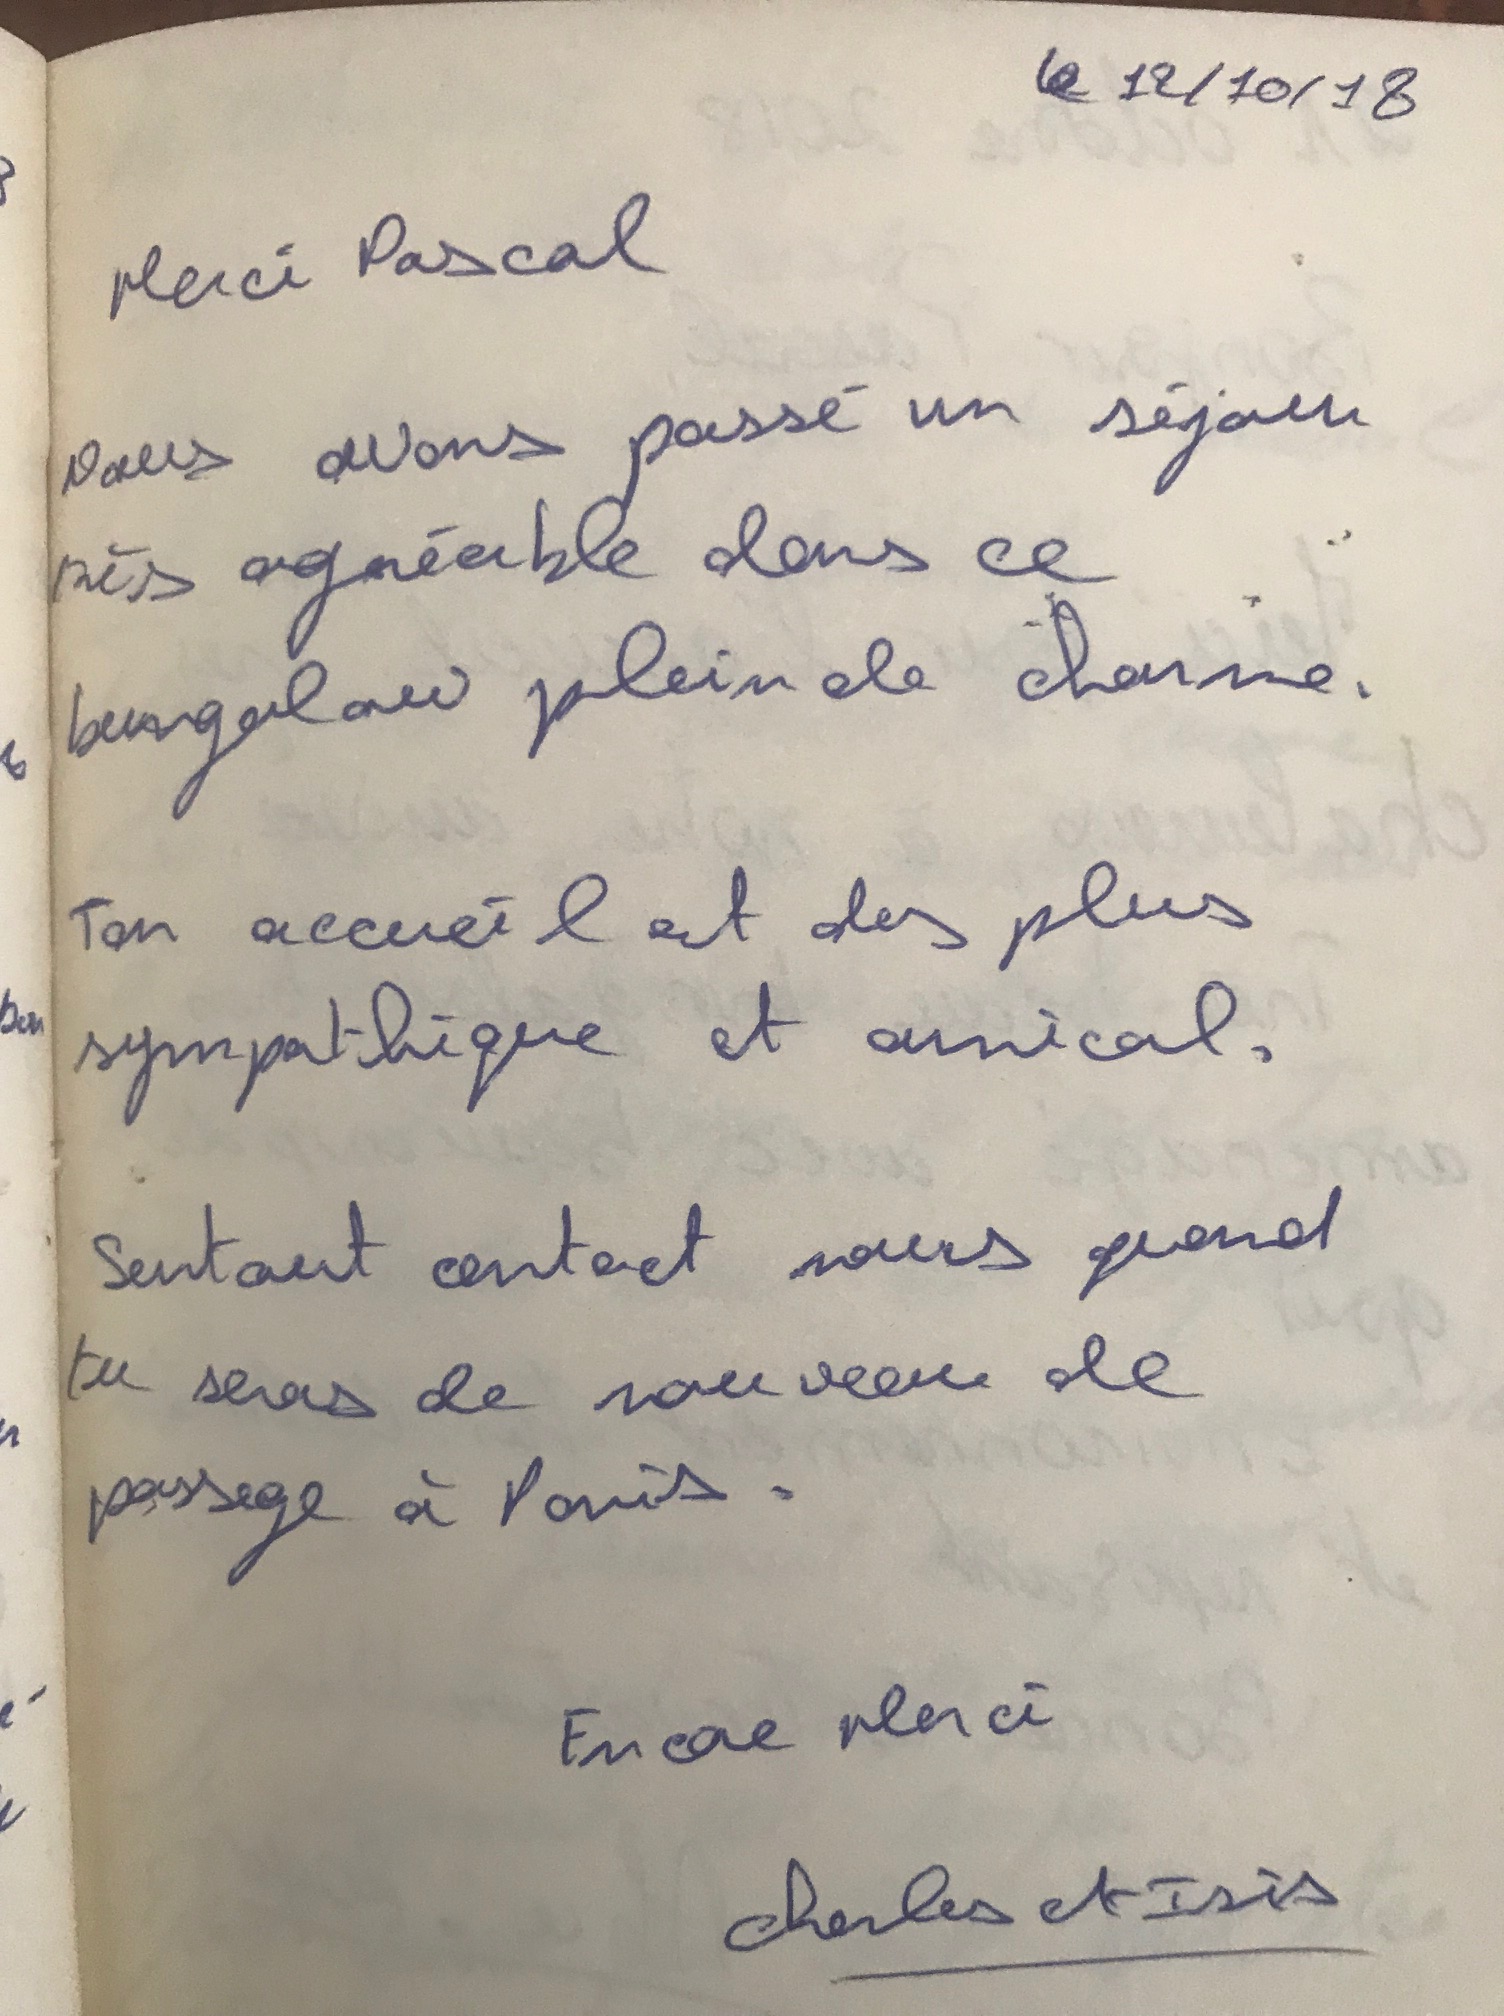 le 12/10/18
Merci Pascal
Nous avons passé un séjour
très agréable dans ce
bungalow plein de charme.
Ton accueil est des plus
sympathique et amical.
Surtout contact nous quand
tu seras de nouveau de
passage à Paris.
Encore Merci
Charles et Isis